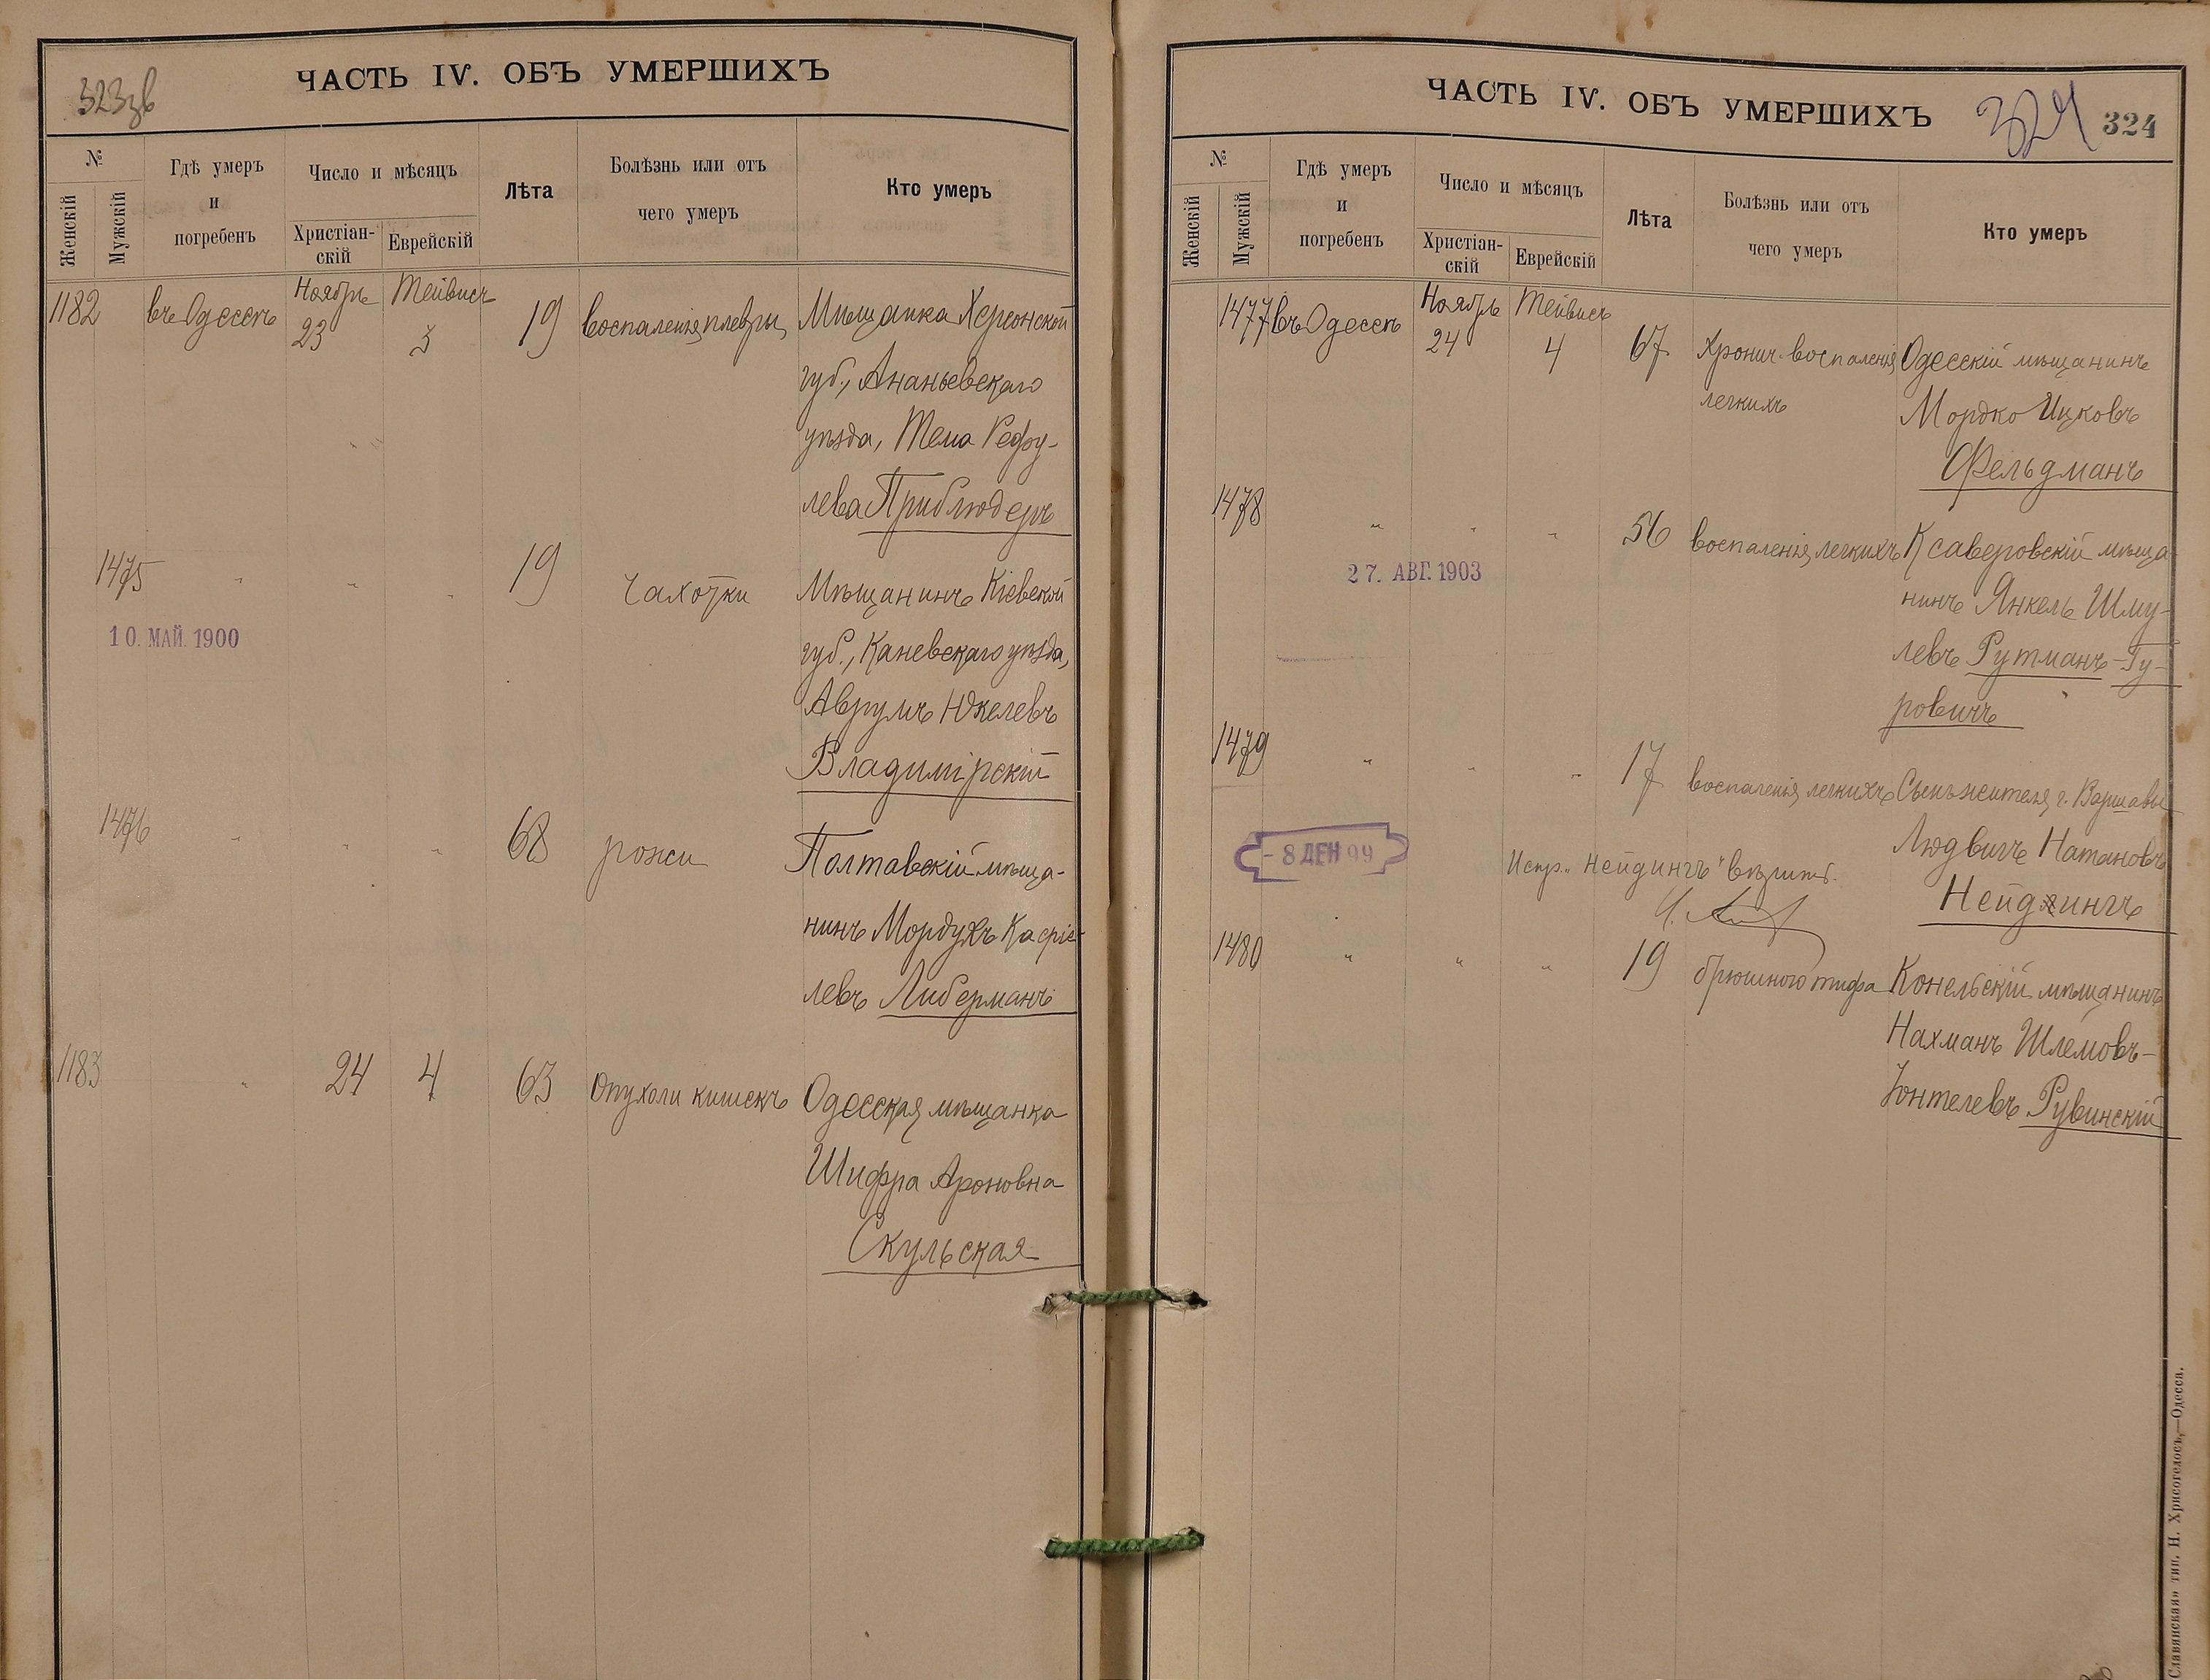 323зв
ЧАСТЬ IV. ОБЪ УМЕРШИХЪ
№
Женскій
Мужскій
Гдѣ умеръ
и
погребенъ
Число и мѣсяцъ
Христіан-
скій
Еврейскій
Лѣта
Болѣзнь или отъ
чего умеръ
Кто умеръ
1182 въ Одессѣ Ноябрь 23 Тейвисъ 3 19 воспаленія плевры Мѣщанка Херсонской
губ., Ананьевскаго
уѣзда, Тема Рефу-
лева Приблюдеръ
1475 " " " 19 Чахотки Мѣщанинъ Кіевской
10. МАЙ. 1900
губ., Каневскаго уѣзда,
Аврумъ Юкелевъ
Владимірскій
1476 " " " 68 рожи Полтавскій мѣща-
нинъ Мордухъ Касріе-
левъ Либерманъ
1183 " 24 4 63 Опухоли кишекъ Одесская мѣщанка
Шифра Ароновна
Скульская
ЧАСТЬ IV. ОБЪ УМЕРШИХЪ
324
324
№
Женскій
Мужскій
Гдѣ умеръ
и
погребенъ
Число и мѣсяцъ
Христіан-
скій
Еврейскій
Лѣта
Болѣзнь или отъ
чего умеръ
Кто умеръ
1477 въ Одессѣ Ноябрь 24 Тейвисъ 4 67 Хронич. воспаленія Одесскій мѣщанинъ
легкихъ Мордко Ицковъ
Фельдманъ
1478 " " " 56 воспаленія легкихъ Ксаверовскій мѣща-
27. АВГ. 1903
нинъ Янкель Шму-
левъ Рутманъ-Гу-
ровичъ
1479 " " " 17 воспаленія легкихъ Сынъ жителя г. Варшавы
Людвигъ Натановъ
- 8 ДЕН 99
Испр. "Нейдингъ"
Нейдингъ
1480 " " " 19 брюшного тифа Конельскій мѣщанинъ
Нахманъ Шлемовъ-
Юнтелевъ Рувинскій
Славянская» тип. Н. Хрисогелосъ,—Одесса.